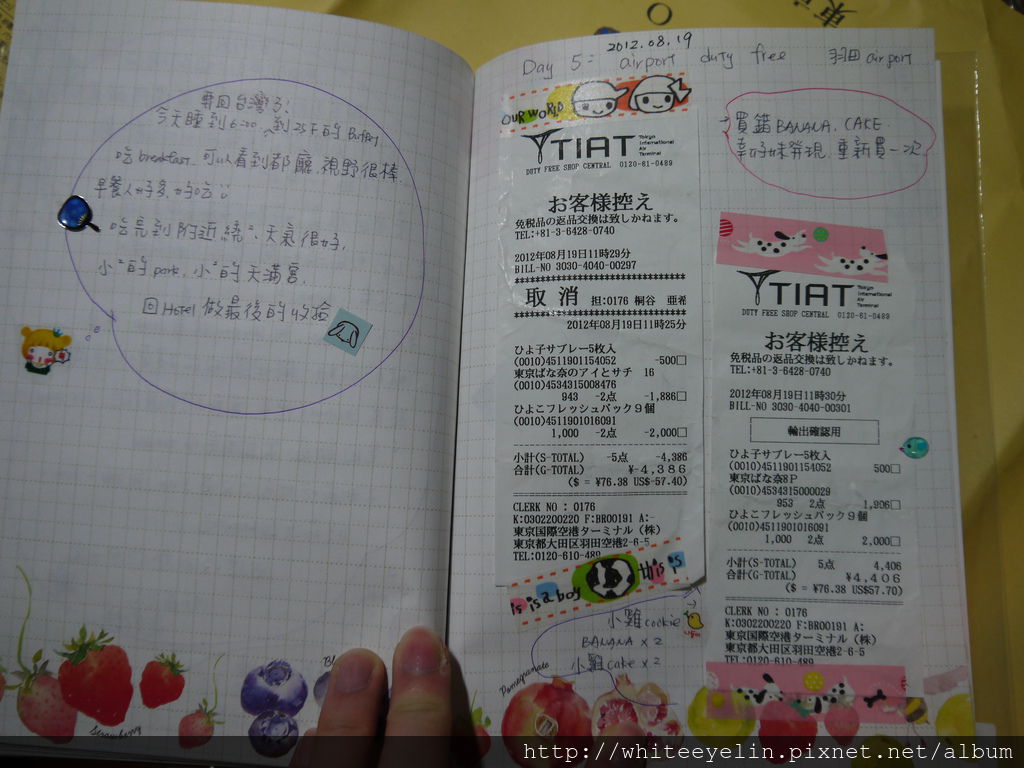 要回台灣了!
今天睡到6:00. 到25F的 Buffet
吃 breakfast. 可以看到都廳. 視野很棒.
早餐人好多, 好吃
吃完到附近繞², 天氣很好,
小²的 park, 小²的天滿宮.
回 Hotel 做最後的收撿
Strawberry
2012.08.19
Day 5: airport duty free 羽田 airport
OUR WORLD
TIAT
Tokyo International Air Terminal
DUTY FREE SHOP CENTRAL 0120-61-0489
お客様控え
免税品の返品交換は致しかねます。
TEL:+81-3-6428-0740
2012年08月19日11時29分
BILL-NO 3030-4040-00297
取 消 担:0176 桐谷 亜希
2012年08月19日11時25分
ひよ子サブレー5枚入
(0010)4511901154052 -500□
東京ばな奈のアイとサチ 16
(0010)4534315008476
943 -2点 -1,886□
ひよこフレッシュパック9個
(0021)4511901016091
1,000 -2点 -2,000□
小計(S-TOTAL) -5点 -4,386
合計(G-TOTAL) ¥-4,386
($ = ¥76.38 US$-57.40)
CLERK NO : 0176
K:0302200220 F:BR00191 A:-
東京国際空港ターミナル（株）
東京都大田区羽田空港2-6-5
TEL:0120-610-489
is is a boy this is
小雞 cookie
BANANA x 2
小雞 cake x 2
Pomegranate
買錯 BANANA. CAKE.
幸好妹發現. 重新買一次.
TIAT
Tokyo International Air Terminal
DUTY FREE SHOP CENTRAL 0120-61-0489
お客様控え
免税品の返品交換は致しかねます。
TEL:+81-3-6428-0740
2012年08月19日11時30分
BILL-NO 3030-4040-00301
輸出確認用
ひよ子サブレー5枚入
(0010)4511901154052 500□
東京ばな奈8P
(0021)4534315000029
953 2点 1,906□
ひよこフレッシュパック9個
(0021)4511901016091
1,000 2点 2,000□
小計(S-TOTAL) 5点 4,406
合計(G-TOTAL) ¥4,406
($ = ¥76.38 US$57.70)
CLERK NO : 0176
K:0302200220 F:BR00191 A:
東京国際空港ターミナル（株）
東京都大田区羽田空港2-6-5
TEL:0120-610-489
http://whiteeyelin.pixnet.net/album